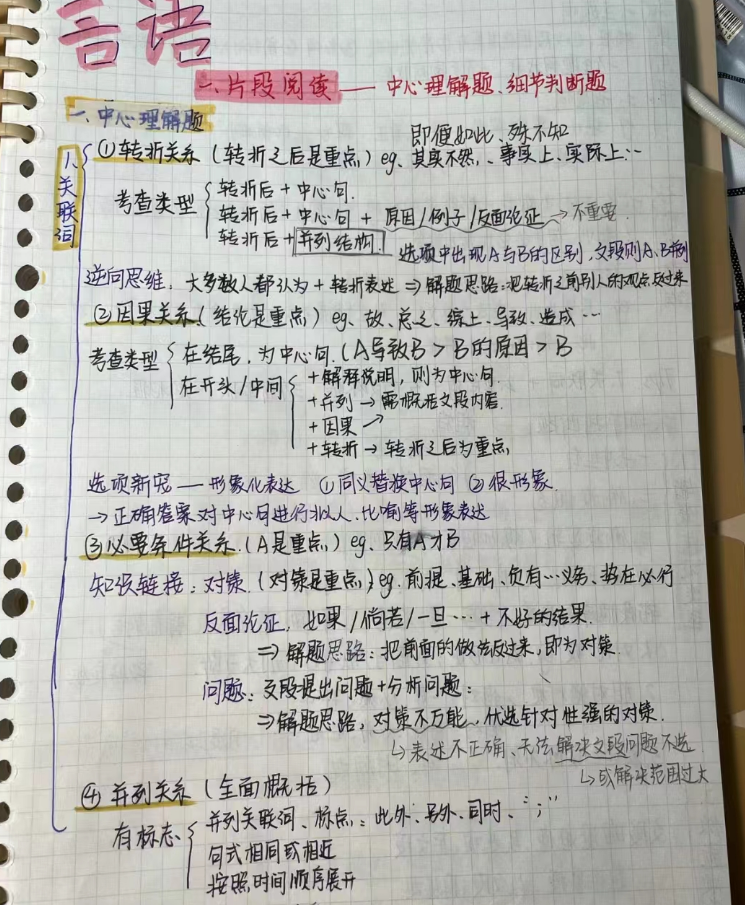 言语
一、片段阅读 —— 中心理解题、细节判断题
一、中心理解题
1、关联词
即便如此、殊不知
①转折关系（转折之后是重点）eg、其实不然、、事实上、实际上…
考查类型
转折后+中心句.
转折后+中心句 + 原因/例子/反面论证 → 不重要.
转折后+并列结构!
选项中出现A与B的区别，文段则A、B并列
逆向思维：大多数人都认为+转折表述 ⇒ 解题思路:把转折之前别人的观点反过来
②因果关系（结论是重点）eg、故、总之、综上、导致、造成…
考查类型
在结尾，为中心句.（A导致B > B的原因 > B
在开头/中间
+解释说明，则为中心句.
+并列 → 需概括文段内容.
+因果 ↗
+转折 → 转折之后为重点,
选项新宠 — 形象化表达 ①同义替换中心句 ②很形象.
→ 正确答案对中心句进行拟人、比喻等形象表达
③必要条件关系.（A是重点）eg、只有A才B
知识链接：对策.（对策是重点）eg、前提、基础、负有…义务、势在必行
反面论证，如果/倘若/一旦…+不好的结果.
⇒ 解题思路：把前面的做法反过来，即为对策.
问题：文段提出问题+分析问题：
⇒解题思路，对策不万能、优选针对性强的对策.
↳表述不正确、无法解决文段问题不选
↳或解决范围过大
④并列关系（全面概括）
有标志
并列关联词、标点：此外、另外、同时、“；”
句式相同或相近
按照时间顺序展开